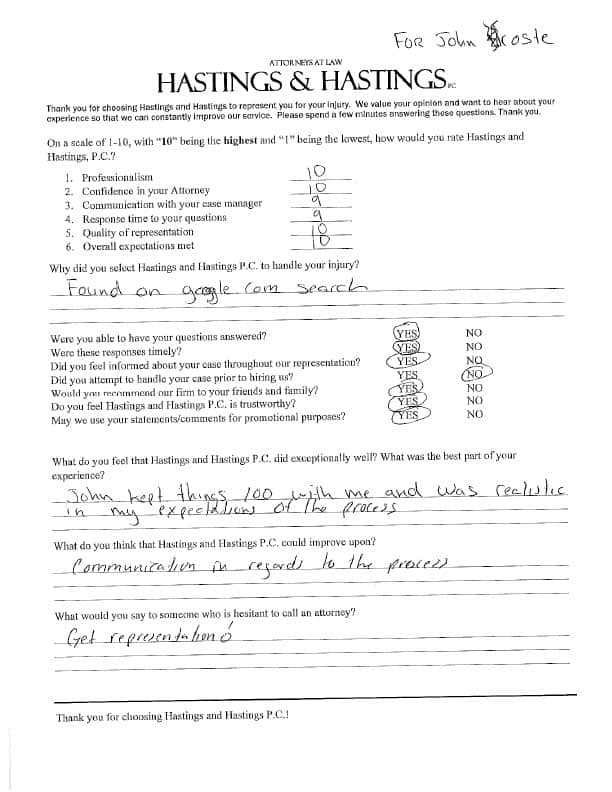 FOR John Coste
ATTORNEYS AT LAW
HASTINGS & HASTINGS PC
Thank you for choosing Hastings and Hastings to represent you for your injury. We value your opinion and want to hear about your
experience so that we can constantly improve our service. Please spend a few minutes answering these questions. Thank you.
On a scale of 1-10, with "10" being the highest and "1" being the lowest, how would you rate Hastings and
Hastings, P.C.?
1. Professionalism 10
2. Confidence in your Attorney 10
3. Communication with your case manager 9
4. Response time to your questions 9
5. Quality of representation 10
6. Overall expectations met 10
Why did you select Hastings and Hastings P.C. to handle your injury?
Found on google.com search
Were you able to have your questions answered? YES NO
Were these responses timely? YES NO
Did you feel informed about your case throughout our representation? YES NO
Did you attempt to handle your case prior to hiring us? YES NO
Would you recommend our firm to your friends and family? YES NO
Do you feel Hastings and Hastings P.C. is trustworthy? YES NO
May we use your statements/comments for promotional purposes? YES NO
What do you feel that Hastings and Hastings P.C. did exceptionally well? What was the best part of your
experience?
John kept things 100 with me and was realistic
in my expectations of the process
What do you think that Hastings and Hastings P.C. could improve upon?
Communication in regards to the process
What would you say to someone who is hesitant to call an attorney?
Get representation!
Thank you for choosing Hastings and Hastings P.C.!